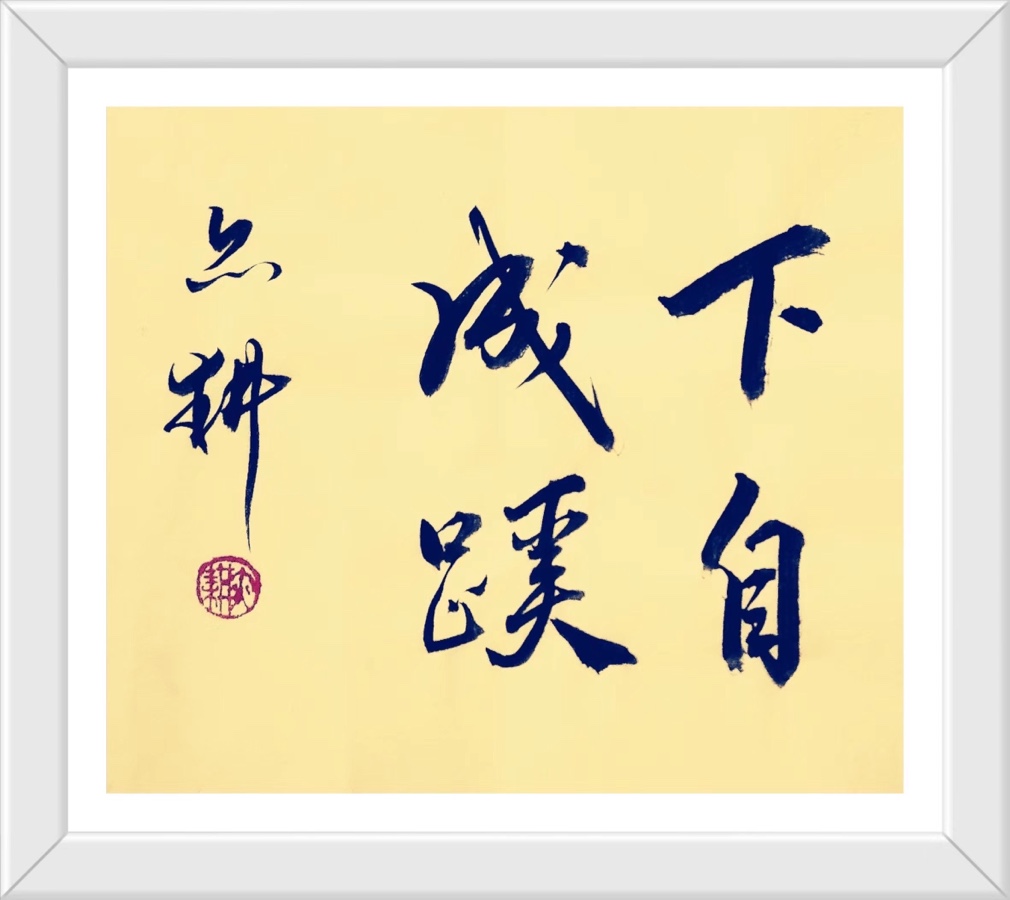 下自
成蹊
亦耕